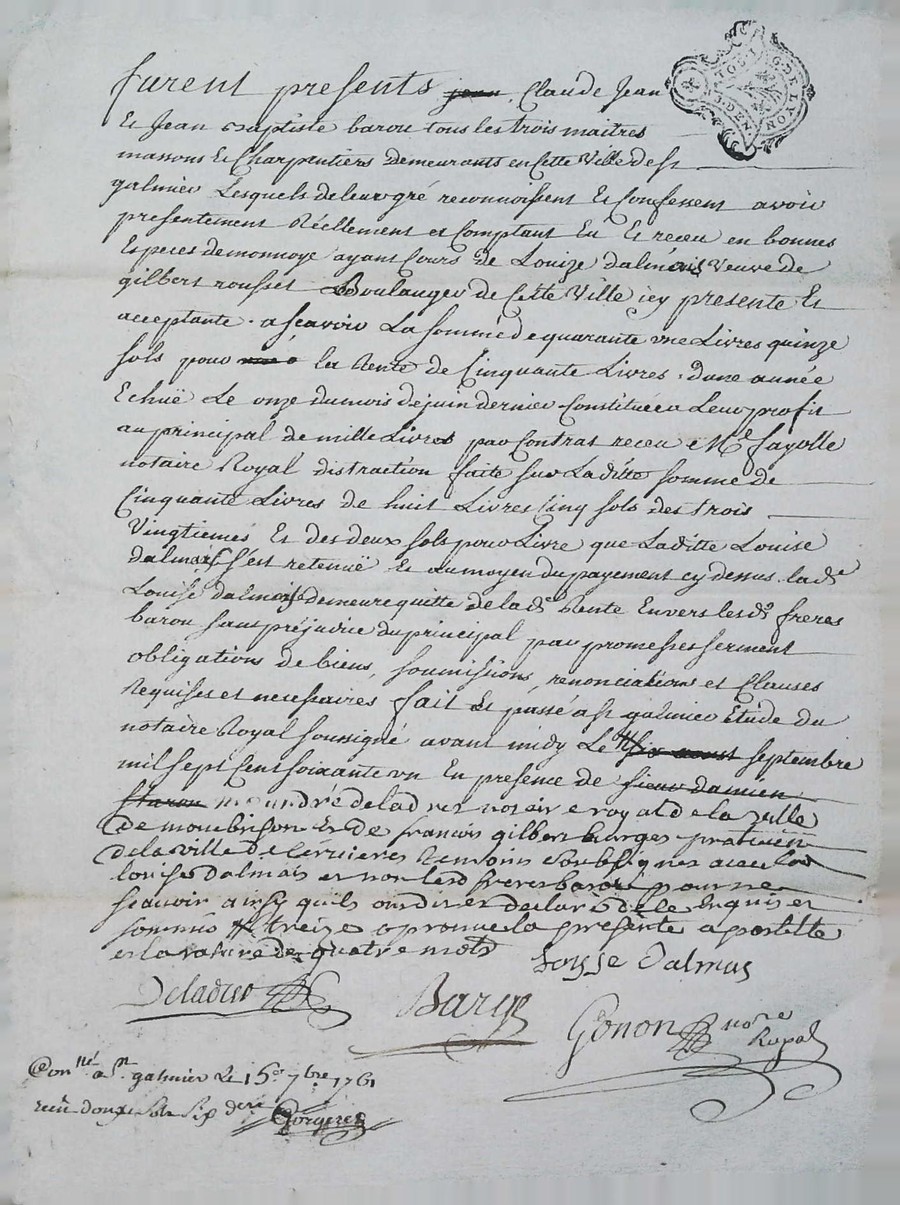 furent presents jean Claude Jean
G. DE LYON
3. DEN.
Et Jean Baptiste barou tous les trois maitres
massons Et Charpentiers demeurants en Cette Ville de st
galmier Lesquels de leur gré reconnoissent Et Confessent avoir
presentement Réellement et Comptant Eu Et receu en bonnes
Especes de monnoye ayant Cours de Louize dalmais Veuve de
gilbert rousset Boulanger de Cette Ville icy presente Et
acceptante. a scavoir La somme de quarante une Livres quinze
sols pour la Rente de Cinquante Livres. d'une année
Echuë Le onze du mois de juin dernier Constituée a Leur profit
au principal de mille Livres par Contrat receu Me fayolle
notaire Royal distraction faite sur Laditte somme de
Cinquante Livres de huit Livres Cinq sols des trois
Vingtiemes Et des deux sols pour Livre que Laditte Louise
dalmais s'est retenuë Et au moyen du payement cy dessus lade
Louise dalmais demeure quitte de lade Rente Envers lesds freres
barou sans préjudice du principal par promesses serment
obligations de biens, soumissions, renonciations et Clauses
Requises et necessaires fait Et passé a st galmier Etude du
notaire Royal soussigné avant midy Le six aoust septembre
mil sept Cent soixante un En presence de sieur damien
me andré deladret notaire royal de la ville
de montbrison Et de francois gilbert burges praticien
de la ville de Cervieres temoins soubsignes avec lad
louise dalmais et non lesd freres barou pour ne
scavoir ainsy qu'ils ont dit et declaré de ce Enquis et
sommés # treize aprouve la presente apostille
et la rature de quatre mots
Loysse Dalmas
Deladret
Barge
Gonon nore
Royal
Con né a st galmier Le 15e 7bre 1761
receu douze sols six deni